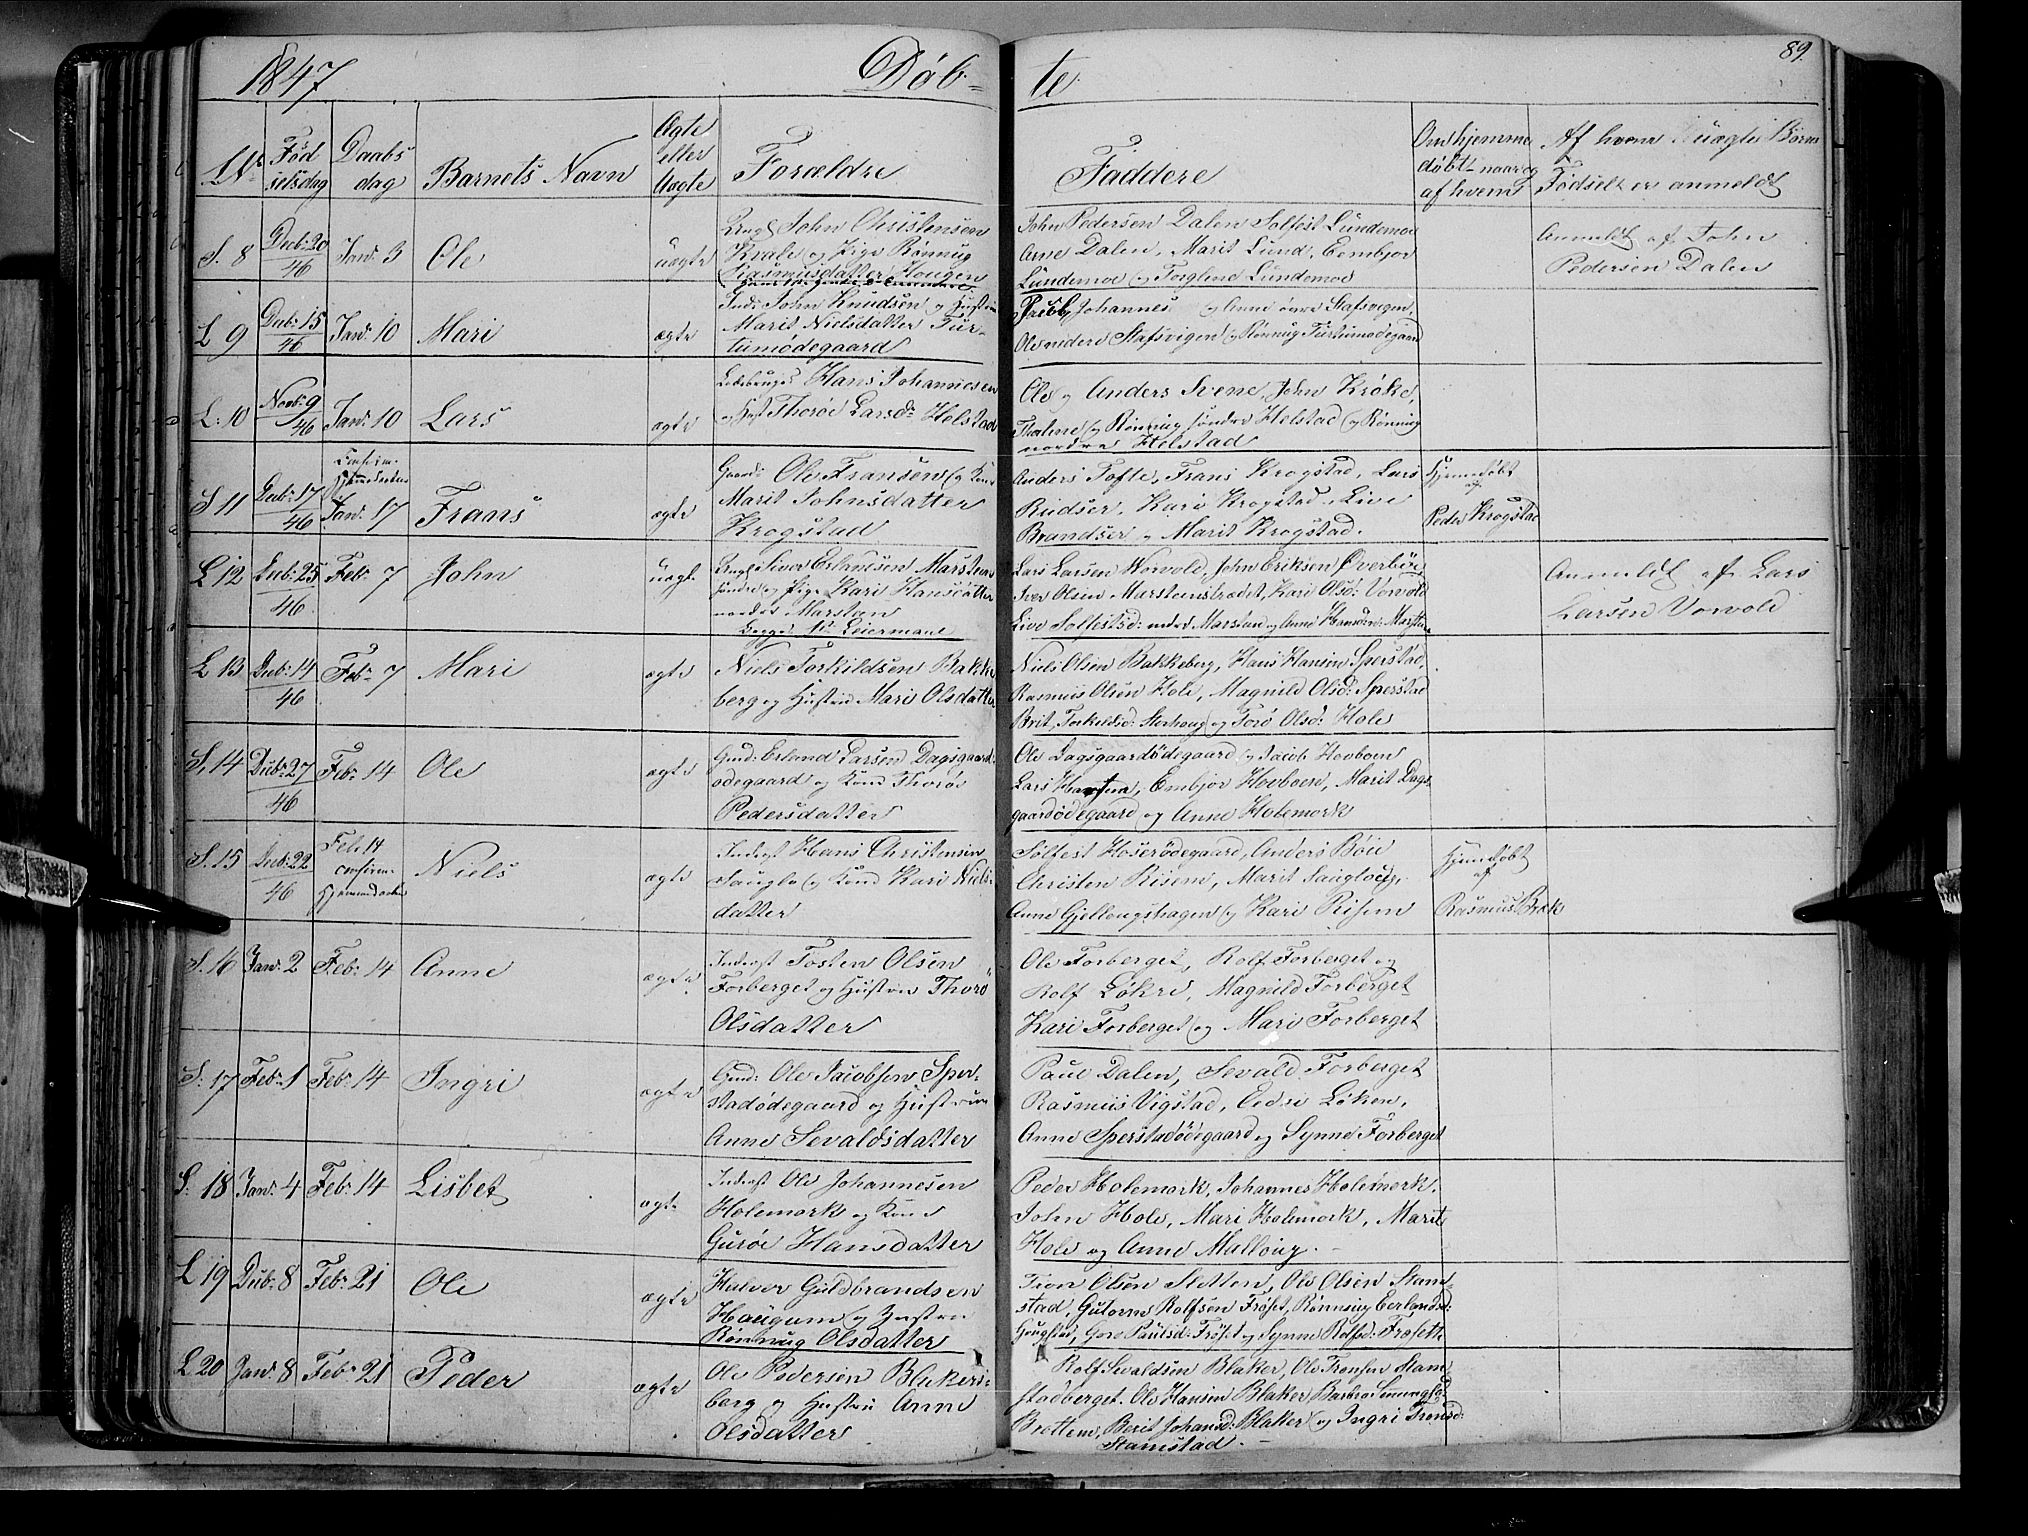 1847 Døb-
te.
89.
No
Fød
selsdag
Daabs
dag
Barnets Navn
Ægte
eller
Uægte
Forældre
Faddere
Om hjemme
døbt naar og
af hvem
Af hvem Uægte Børns
Fødsel er anmeldt
S. 8
Decb: 20
46
Jan: 3
Ole
uægte
Ungk John Christensen
Kvale og Pige Rønnug
Rasmusdatter Hougen
John Pedersen Dalen Solfest Lundemoe
Arne Dalen, Marit Lund, Eembjor
Lundemoe og Torglene Lundemoe
Anmeldt af John
Pedersen Dalen
L 9
Decb: 15
46
Jan: 10
Mari
ægte
Inds: John Knudsen og Hustrue
Marit Nielsdatter Tur-
tumødegaard
Jacob, Johannes og Anne øvre Stafsvigen,
Ole nedre Stafsvigen og Rønnug Turtumødegaard
L: 10
Novb: 9
46
Jan: 10
Lars
ægte
Hans Johannesen
og Thorøe Larsd: Helstad
Ole og Anders Svene, John Krøke,
og Rønnug søndre Helstad og Rønnug
nordre Helstad
S 11
Decb: 17
46
Jan: 17
Frans
ægte
Gaardr: Ole Fransen og Kone
Marit Johnsdatter
Krogstad
Anders Tofte, Frans Krogstad, Lars
Rudser, Kari Krogstad, Live
Brandser og Marit Krogstad.
Hjemmedøbt
af
Peder Krogstad
L 12
Decb: 25
46
Feb: 7
John
uægte
Ungk Siver Erlandsen Marstein
søndre og Pige Kari Hansdatter
nordre Marstein
Begges 1st Leiermaal
Lars Larsen Vorvold, John Eriksen Øverbøe
Iver Olsen Marsteinstrædet, Kari Olsd: Vorvold
Live Solfestsd: nedre Marstein og Anne Hansdtr: Marstein
Anmeldt af Lars
Larsen Vorvold
L 13
Decb: 14
46
Feb: 7
Mari
ægte
Niels Torkildsen Bakke
berg og Hustrue Mari Olsdatter
Niels Olsen Bakkeberg, Hans Hansen Sperstad,
Rasmus Olsen Hole, Magnild Olsd: Sperstad
Brit Torkildsd: Storhaug og Torø Olsd: Hole
S. 14
Decb: 27
46
Feb: 14
Ole
ægte
Gmd: Erland Larsen Dagsgaard-
ødegaard og Kone Thorøe
Pedersdatter
Ole Dagsgaardødegaard og Jacob Hovboen
Lars, Eembjor Hovboen, Marit Dags-
gaardødegaard og Anne Holemork
S. 15
Decb: 22
46
Feb 14
confirm
Hjemmedaaben
Niels
ægte
Inderst Hans Christensen
Sougla og Kone Kari Niels-
datter
Solfest Hoserødegaard, Anders Bøe
Christen Risem, Marit Sougloug,
Anne Gjellongshagen og Kari Risem
Hjemmedøbt
af
Rasmus Bræk
S. 16
Jan: 2
Feb: 14
Anne
ægte
Inderst Tosten Olsen
Forberget og Hustrue Thorø
Olsdatter
Ole Forberget, Rolf Forberget og
Rolf Løkre, Magnild Forberget
Kari Forberget og Mari Forberget
S: 17
Feb: 1
Feb: 14
Ingri
ægte
Gmd: Ole Jacobsen Sper-
stadødegaard og Hustrue
Anne Sevaldsdatter
Paul Dalen, Sevald Forberget
Rasmus Vigstad, Eedri Løken,
Anne Sperstadødegaard og Synne Forberget
S: 18
Jan: 4
Feb: 14
Lisbet
ægte
Inderst Ole Johannesen
Holemork og Kone
Gurøe Hansdatter
Peder Holemork, Johannes Holemork,
John Hole, Mari Holemork, Marit
Hole og Anne Malloug.
L 19
Decb: 8
Feb: 21
Ole
ægte
Halvor Guldbrandsen
Haugum og Hustrue
Rønnug Olsdatter
Tron Olsen Stotten, Ole Olsen Stam-
stad, Gutorm Rolfsen Frøset, Rønnoug Eerlandsd:
Hougstad, Gore Paulsd: Frøset og Synne Rolfsd: Frøseth
L 20
Jan: 8
Feb: 21
Peder
ægte
Ole Pedersen Blakers-
berg og Hustrue Anne
Olsdatter
Rolf Sevaldsen Blaker, Ole Tronsen Stam-
stadberget, Ole Hansen Blaker Barbra
Brottem, Berit Johansd: Blaker og Ingri Tronsd:
Stamstad.